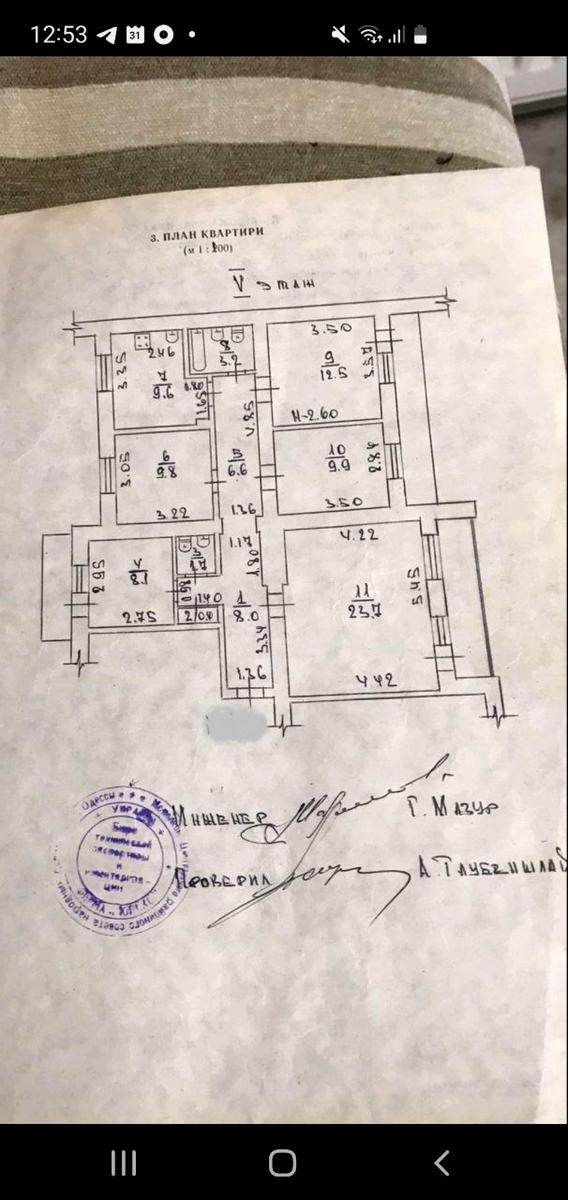 12:53
31
3. ПЛАН КВАРТИРИ
(м 1 : 100)
V этаж
3.35
2.46
7
9.6
8
3.2
0.80
1.65
3.50
9
12.5
3.57
H-2.60
3.05
6
9.8
3.22
4.85
5
6.6
1.36
10
9.9
2.84
3.50
2.95
4
8.1
2.75
3
1.7
0.98
1.40
2 0.4
1.17
1.80
1
8.0
3.34
1.36
4.22
11
23.7
5.45
4.42
Инженер
Г. Мазур
Проверил
Одессы
Бюро
технической
экспертизы
и
районного совета народных